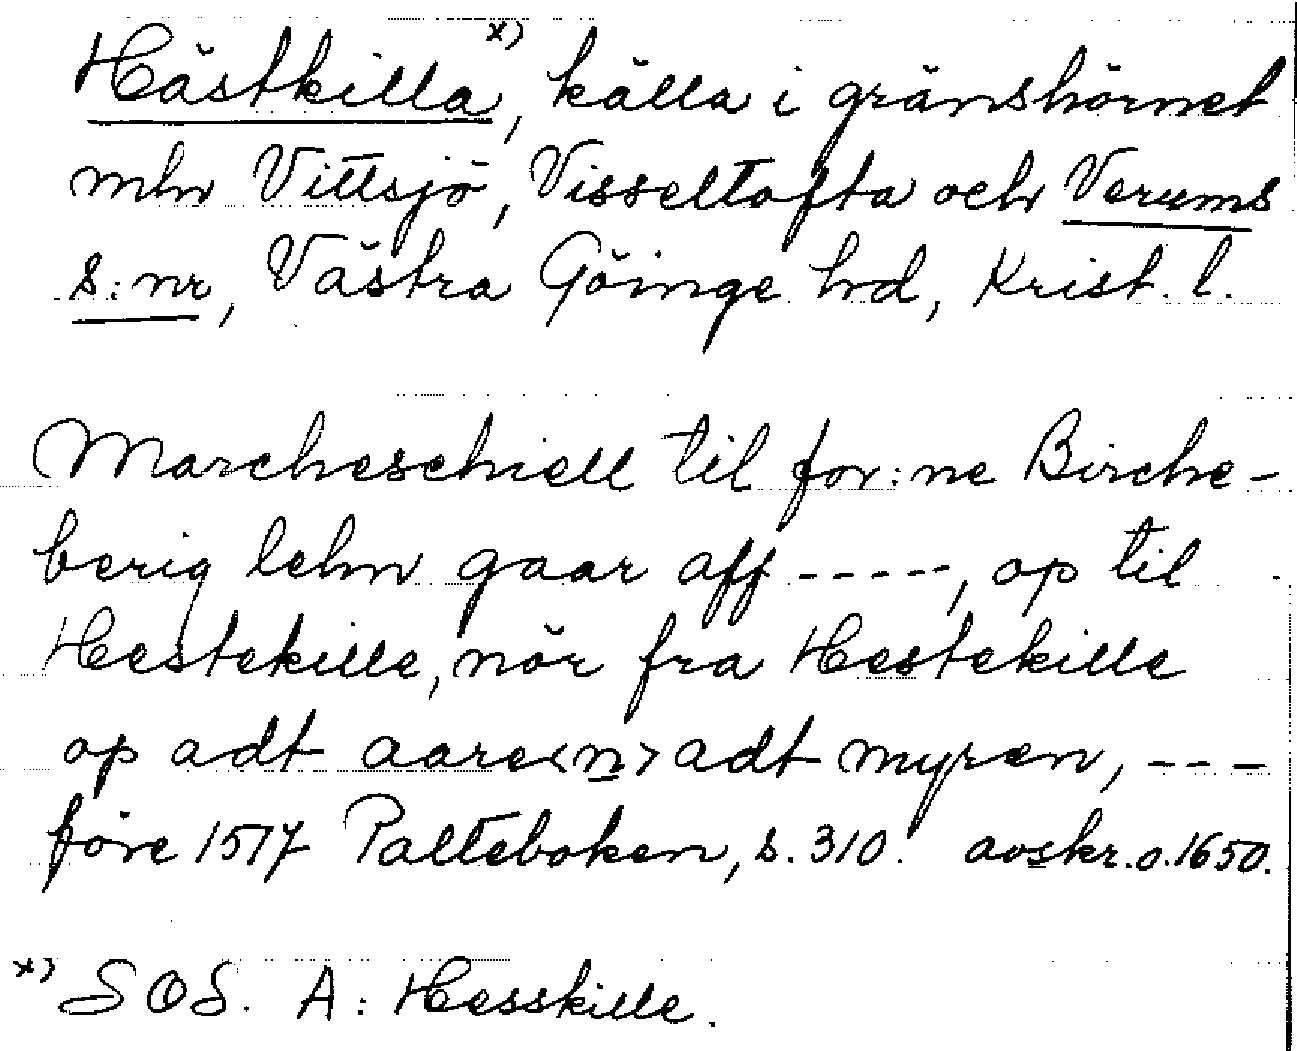 Hästkilla x), källa i gränshörnet
mln Vittsjö, Visseltofta och Verums
s:nr, Västra Göinge hd, Krist. l.
Marcheschiell til for:ne Birche-
berig lehn gaar aff -----, op til
Hestekille, nör fra Hestekille
op adt aare<n> adt myren, ---
före 1517 Palteboken, s. 310. avskr. o. 1650.
x) SOS. A: Hesskille.